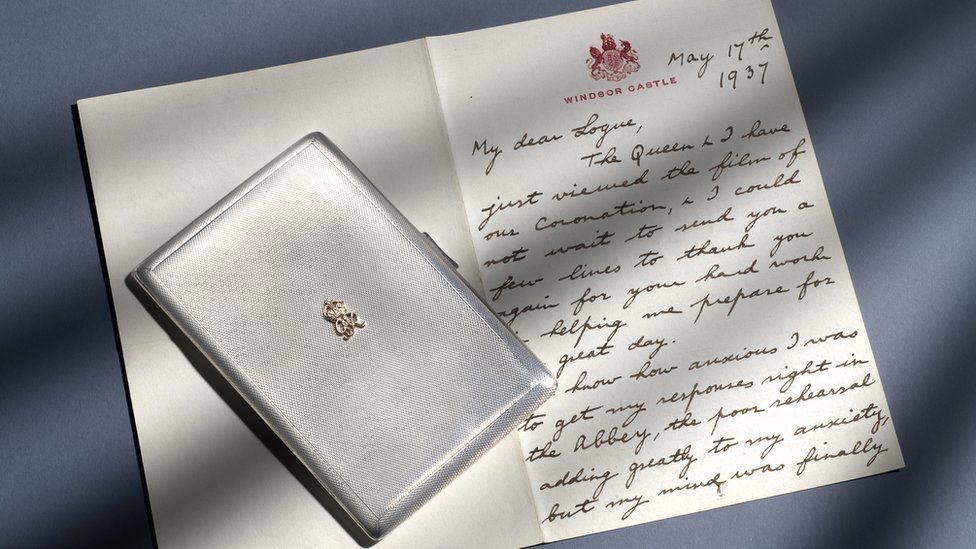 WINDSOR CASTLE
May 17th
1937
My dear Logue,
The Queen & I have
just viewed the film of
our Coronation, & I could
not wait to send you a
few lines to thank you
again for your hard work
helping me prepare for
great day.
know how anxious I was
to get my responses right in
the Abbey, the poor rehearsal
adding greatly to my anxiety,
but my mind was finally